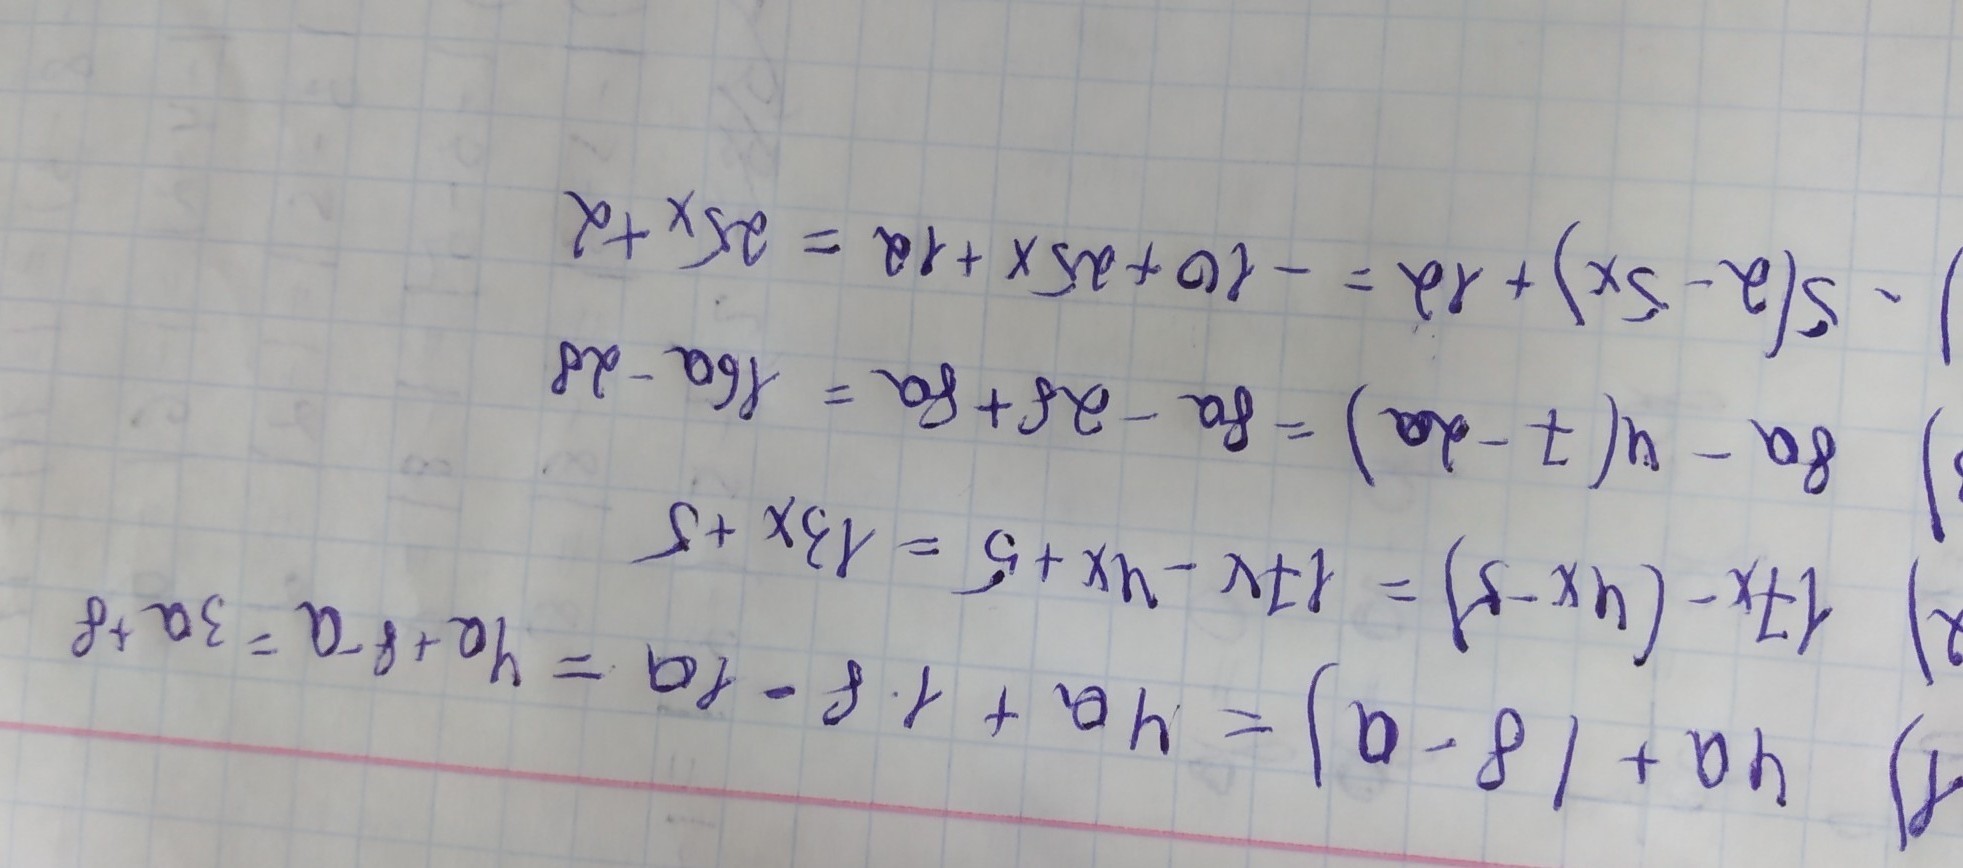 1) 4a + (8 - a) = 4a + 1·8 - 1a = 4a+8-a = 3a+8
2) 17x - (4x - 5) = 17x - 4x + 5 = 13x + 5
3) 8a - 4(7 - 2a) = 8a - 28 + 8a = 16a - 28
) - 5(2 - 5x) + 12 = - 10 + 25x + 12 = 25x + 2